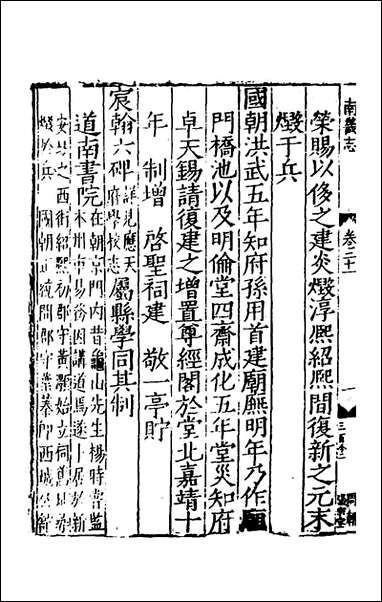 南畿志 卷二十一
榮賜以侈之建炎燬淳熙紹熙間復新之元末
燬于兵
國朝洪武五年知府孫用首建廟廡明年乃作廟
門橋池以及明倫堂四齋成化五年堂災知府
卓天錫請復建之增置尊經閣於堂北嘉靖十
年 制增 啓聖祠建 敬一亭貯
宸翰六碑詳見應天府學校志屬縣學同其制
道南書院在朝京門內昔龜山先生楊時嘗監
本州市易務因講道焉遂卜居於斯
之西街紹熙初郡守黃灝始立祠
燬於兵 國朝